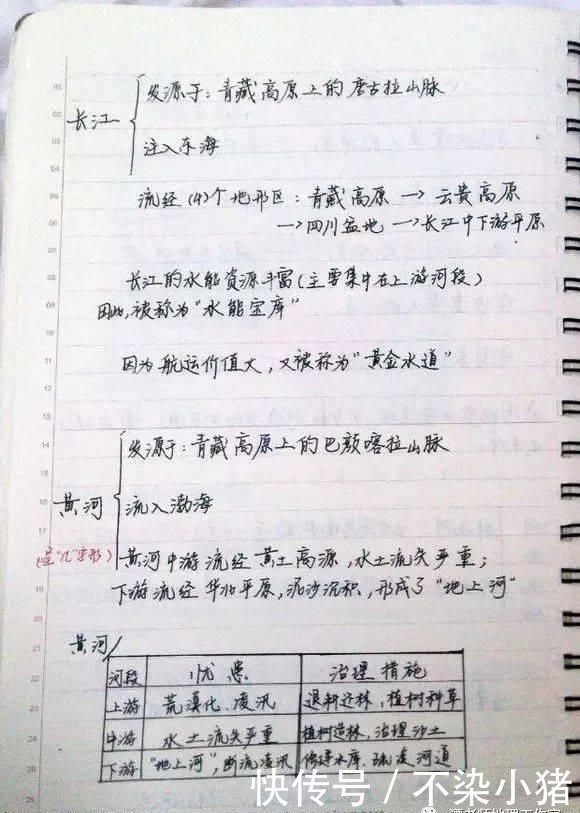 发源于：青藏高原上的唐古拉山脉
长江
注入东海
流经(4)个地形区：青藏高原→云贵高原
→四川盆地→长江中下游平原
长江的水能资源丰富(主要集中在上游河段)
因此,被称为"水能宝库"
因为航运价值大,又被称为"黄金水道"
发源于:青藏高原上的巴颜喀拉山脉
黄河
流入渤海
(呈"几"字形)
黄河中游流经黄土高源,水土流失严重;
下游流经华北平原,泥沙沉积,形成了"地上河"
黄河
河段 忧患 治理措施
上游 荒漠化、凌汛 退耕还林,植树种草
中游 水土流失严重 植树造林,治理沙土
下游 "地上河",断流凌汛 修建水库、疏浚河道
快传号/不染小猪